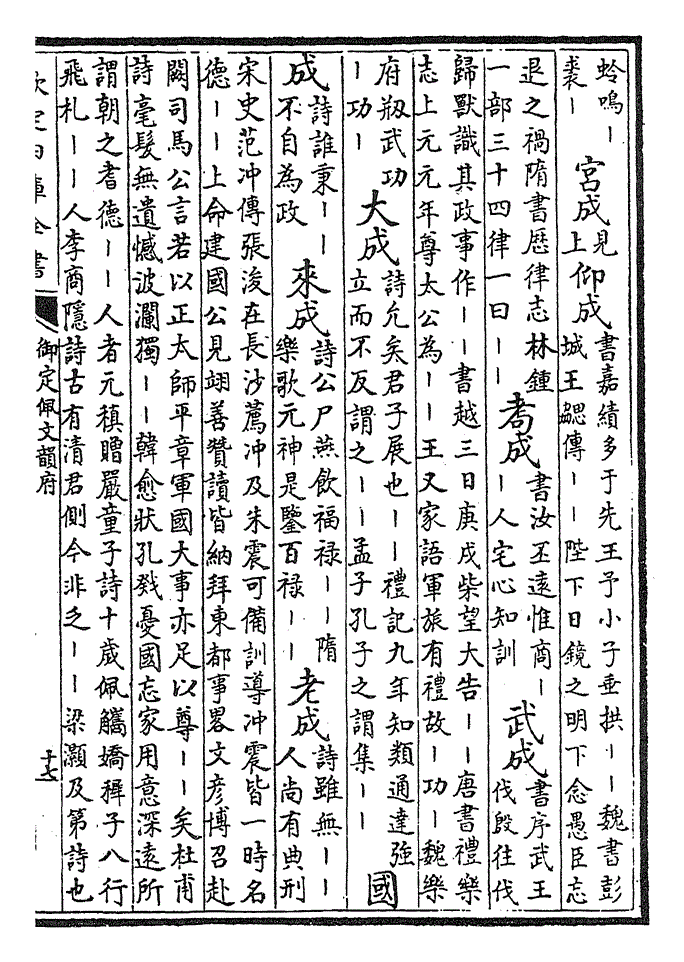 蛉鳴｜
裘｜
宮成
見
上
仰成
書嘉績多于先王予小子垂拱｜｜魏書彭
城王勰傳｜｜陛下日鏡之明下念愚臣忘
退之禍隋書歴律志林鍾
一部三十四律一曰｜｜
耉成
書汝丕逺惟商｜
｜人宅心知訓
武成
書序武王
伐殷往伐
歸獸識其政事作｜｜書越三日庚戌柴望大告｜｜唐書禮樂
志上元元年尊太公為｜｜王又家語軍旅有禮故｜功｜魏樂
府剏武功
｜功｜
大成
詩允矣君子展也｜｜禮記九年知類通達强
立而不反謂之｜｜孟子孔子之謂集｜｜
國
成
詩誰秉｜｜
不自為政
來成
詩公尸燕飲福禄｜｜隋
樂歌元神是鑒百禄｜｜
老成
詩雖無｜｜
人尚有典刑
宋史范冲傳張浚在長沙薦冲及朱震可備訓導冲震皆一時名
德｜｜上命建國公見翊善贊讀皆納拜東都事畧文彦博召赴
闕司馬公言若以正太師平章軍國大事亦足以尊｜｜矣杜甫
詩毫髮無遺憾波瀾獨｜｜韓愈狀孔戣憂國忘家用意深逺所
謂朝之耆德｜｜人者元稹贈嚴童子詩十歳佩觿嬌穉子八行
飛札｜｜人李商隱詩古有清君側今非乏｜｜梁灝及第詩也
欽定四庫全書
御定佩文韻府
十七